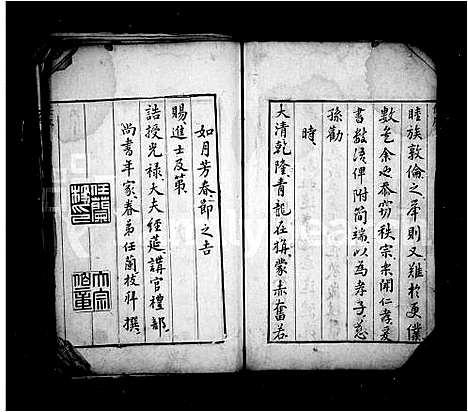 睦族敦倫之舉則又難於更僕
數也余也忝竊秩宗樂聞仁孝爰
書數語俾附簡端以為孝子慈
孫勸
時
大清乾隆青龍在旃蒙赤奮若
如月芳春節之吉
賜進士及第
誥授光祿大夫經筵講官禮部
尚書年家眷弟任蘭枝拜撰
任蘭枝印
大宗伯章